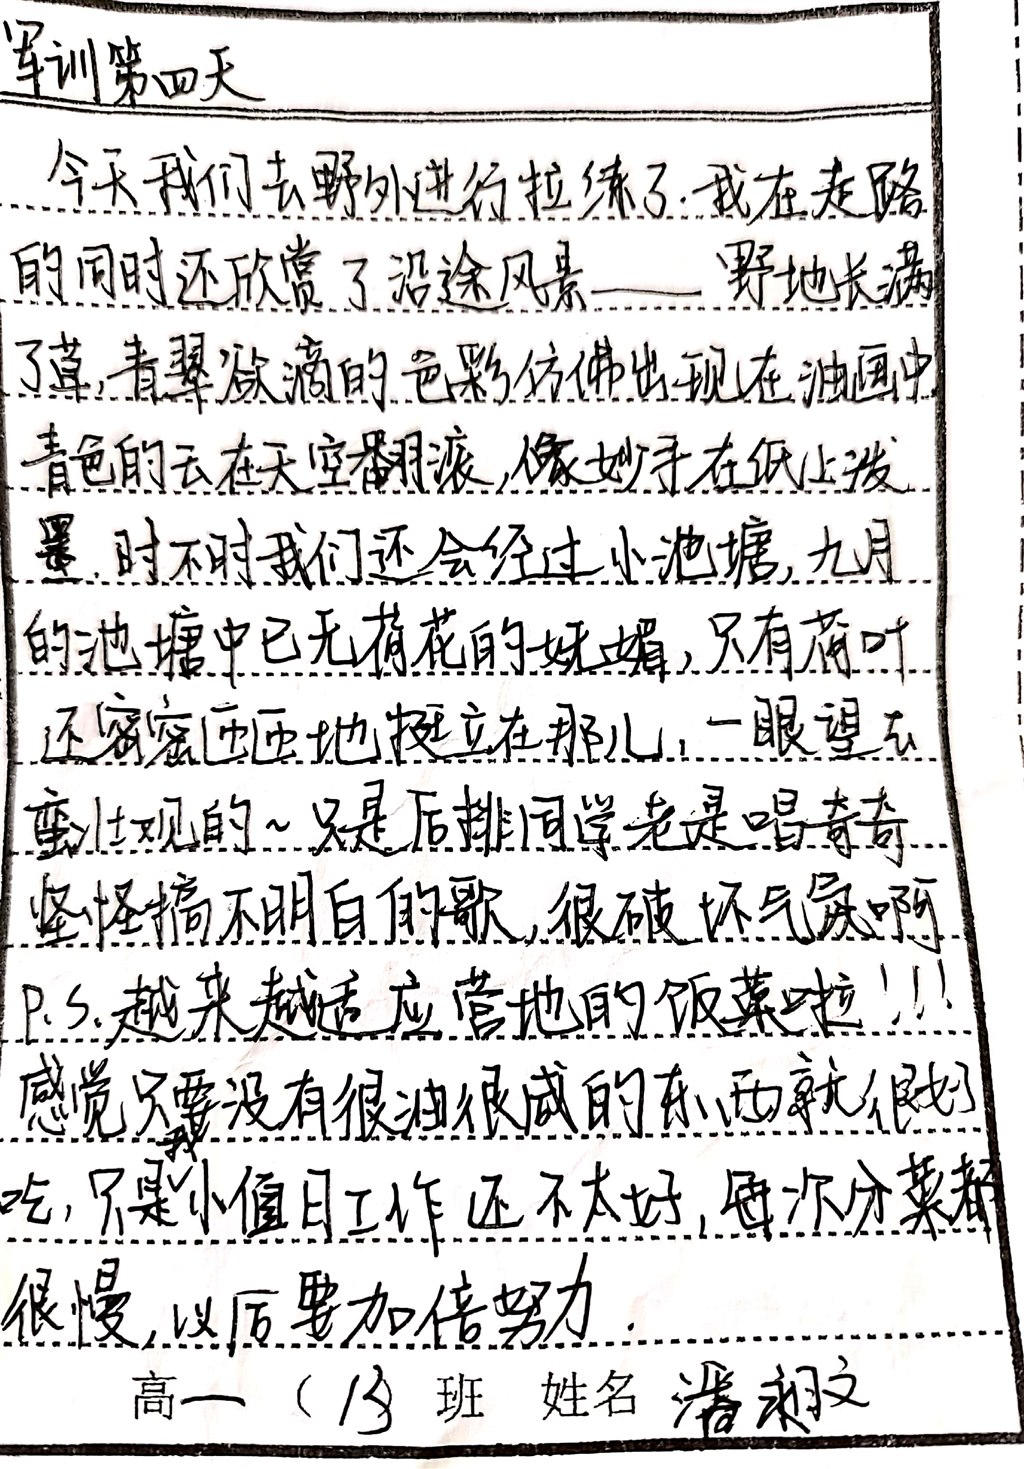 军训第四天
今天我们去野外进行拉练了.我在走路
的同时还欣赏了沿途风景——野地长满
了草,青翠欲滴的色彩仿佛出现在油画中
青色的云在天空翻滚,像妙手在纸上泼
墨.时不时我们还会经过小池塘,九月
的池塘中已无荷花的妩媚,只有荷叶
还密密匝匝地挺立在那儿,一眼望去
蛮壮观的~只是后排同学老是唱奇奇
怪怪搞不明白的歌,很破坏气氛啊
P.S.越来越适应营地的饭菜啦!!!
感觉只要没有很油很咸的东西就很好
吃,只是我小值日工作还不太好,每次分菜都
很慢,以后要加倍努力.
高一(13)班 姓名 潘翊文